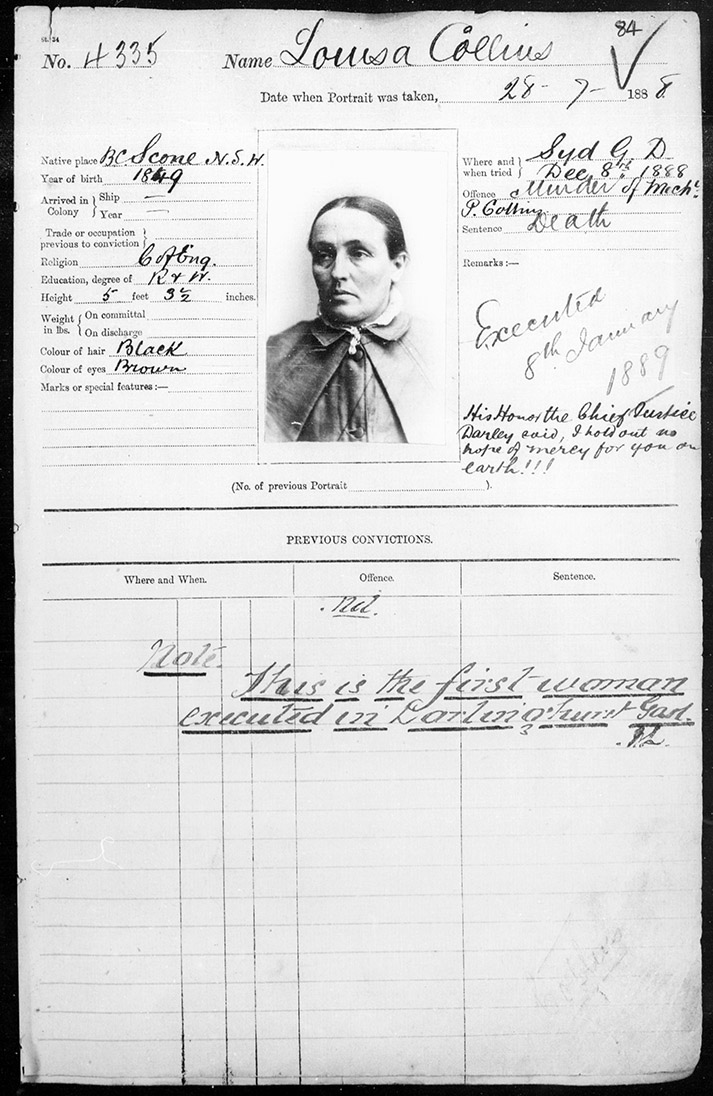 84
No. 4335 Name Louisa Collins
Date when Portrait was taken, 28-7-1888
Native place BC. Scone N.S.W.
Year of birth 1849
Arrived in Colony } Ship —
Year —
Trade or occupation previous to conviction }
Religion C of Eng.
Education, degree of R & W.
Height 5 feet 3½ inches.
Weight in lbs. { On committal
On discharge
Colour of hair Black
Colour of eyes Brown
Marks or special features:—
Where and when tried } Syd G. D
Dec 8th 1888
Offence Murder of Mich.
P. Collins
Sentence Death
Remarks:—
Executed
8th January
1889
His Honor the Chief Justice
Darley said, I hold out no
hope of mercy for you on
earth!!!
(No. of previous Portrait ).
PREVIOUS CONVICTIONS.
Where and When. Offence. Sentence.
Nil.
Note.
This is the first woman
executed in Darlinghurst Gaol.
Collins